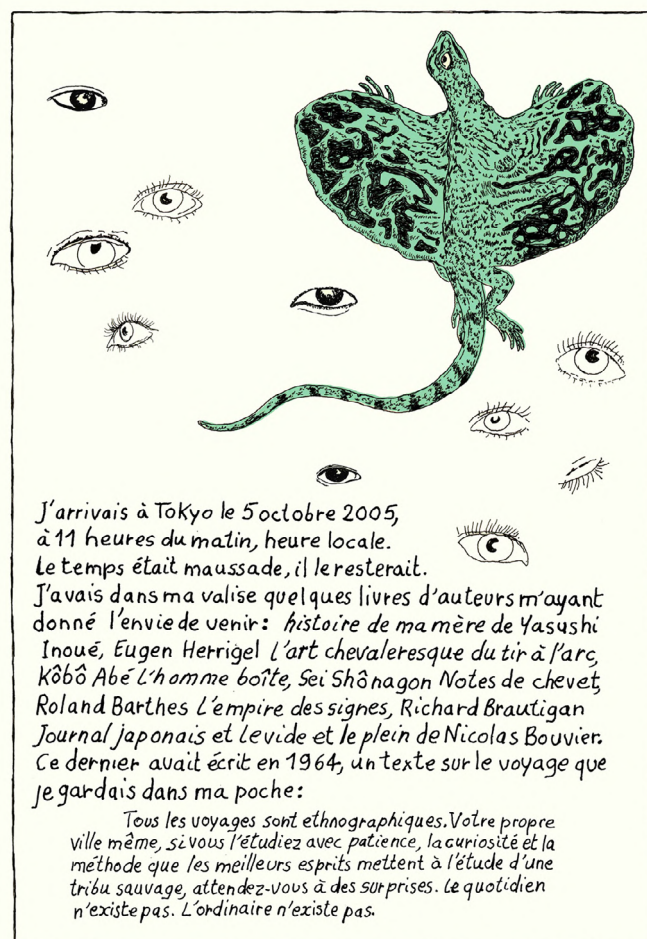 J'arrivais à Tokyo le 5 octobre 2005,
à 11 heures du matin, heure locale.
Le temps était maussade, il le resterait.
J'avais dans ma valise quelques livres d'auteurs m'ayant
donné l'envie de venir: histoire de ma mère de Yasushi
Inoué, Eugen Herrigel L'art chevaleresque du tir à l'arc,
Kôbô Abé L'homme boîte, Sei Shônagon Notes de chevet,
Roland Barthes L'empire des signes, Richard Brautigan
Journal japonais et Le vide et le plein de Nicolas Bouvier.
Ce dernier avait écrit en 1964, un texte sur le voyage que
je gardais dans ma poche:
Tous les voyages sont ethnographiques. Votre propre
ville même, si vous l'étudiez avec patience, la curiosité et la
méthode que les meilleurs esprits mettent à l'étude d'une
tribu sauvage, attendez-vous à des surprises. Le quotidien
n'existe pas. L'ordinaire n'existe pas.